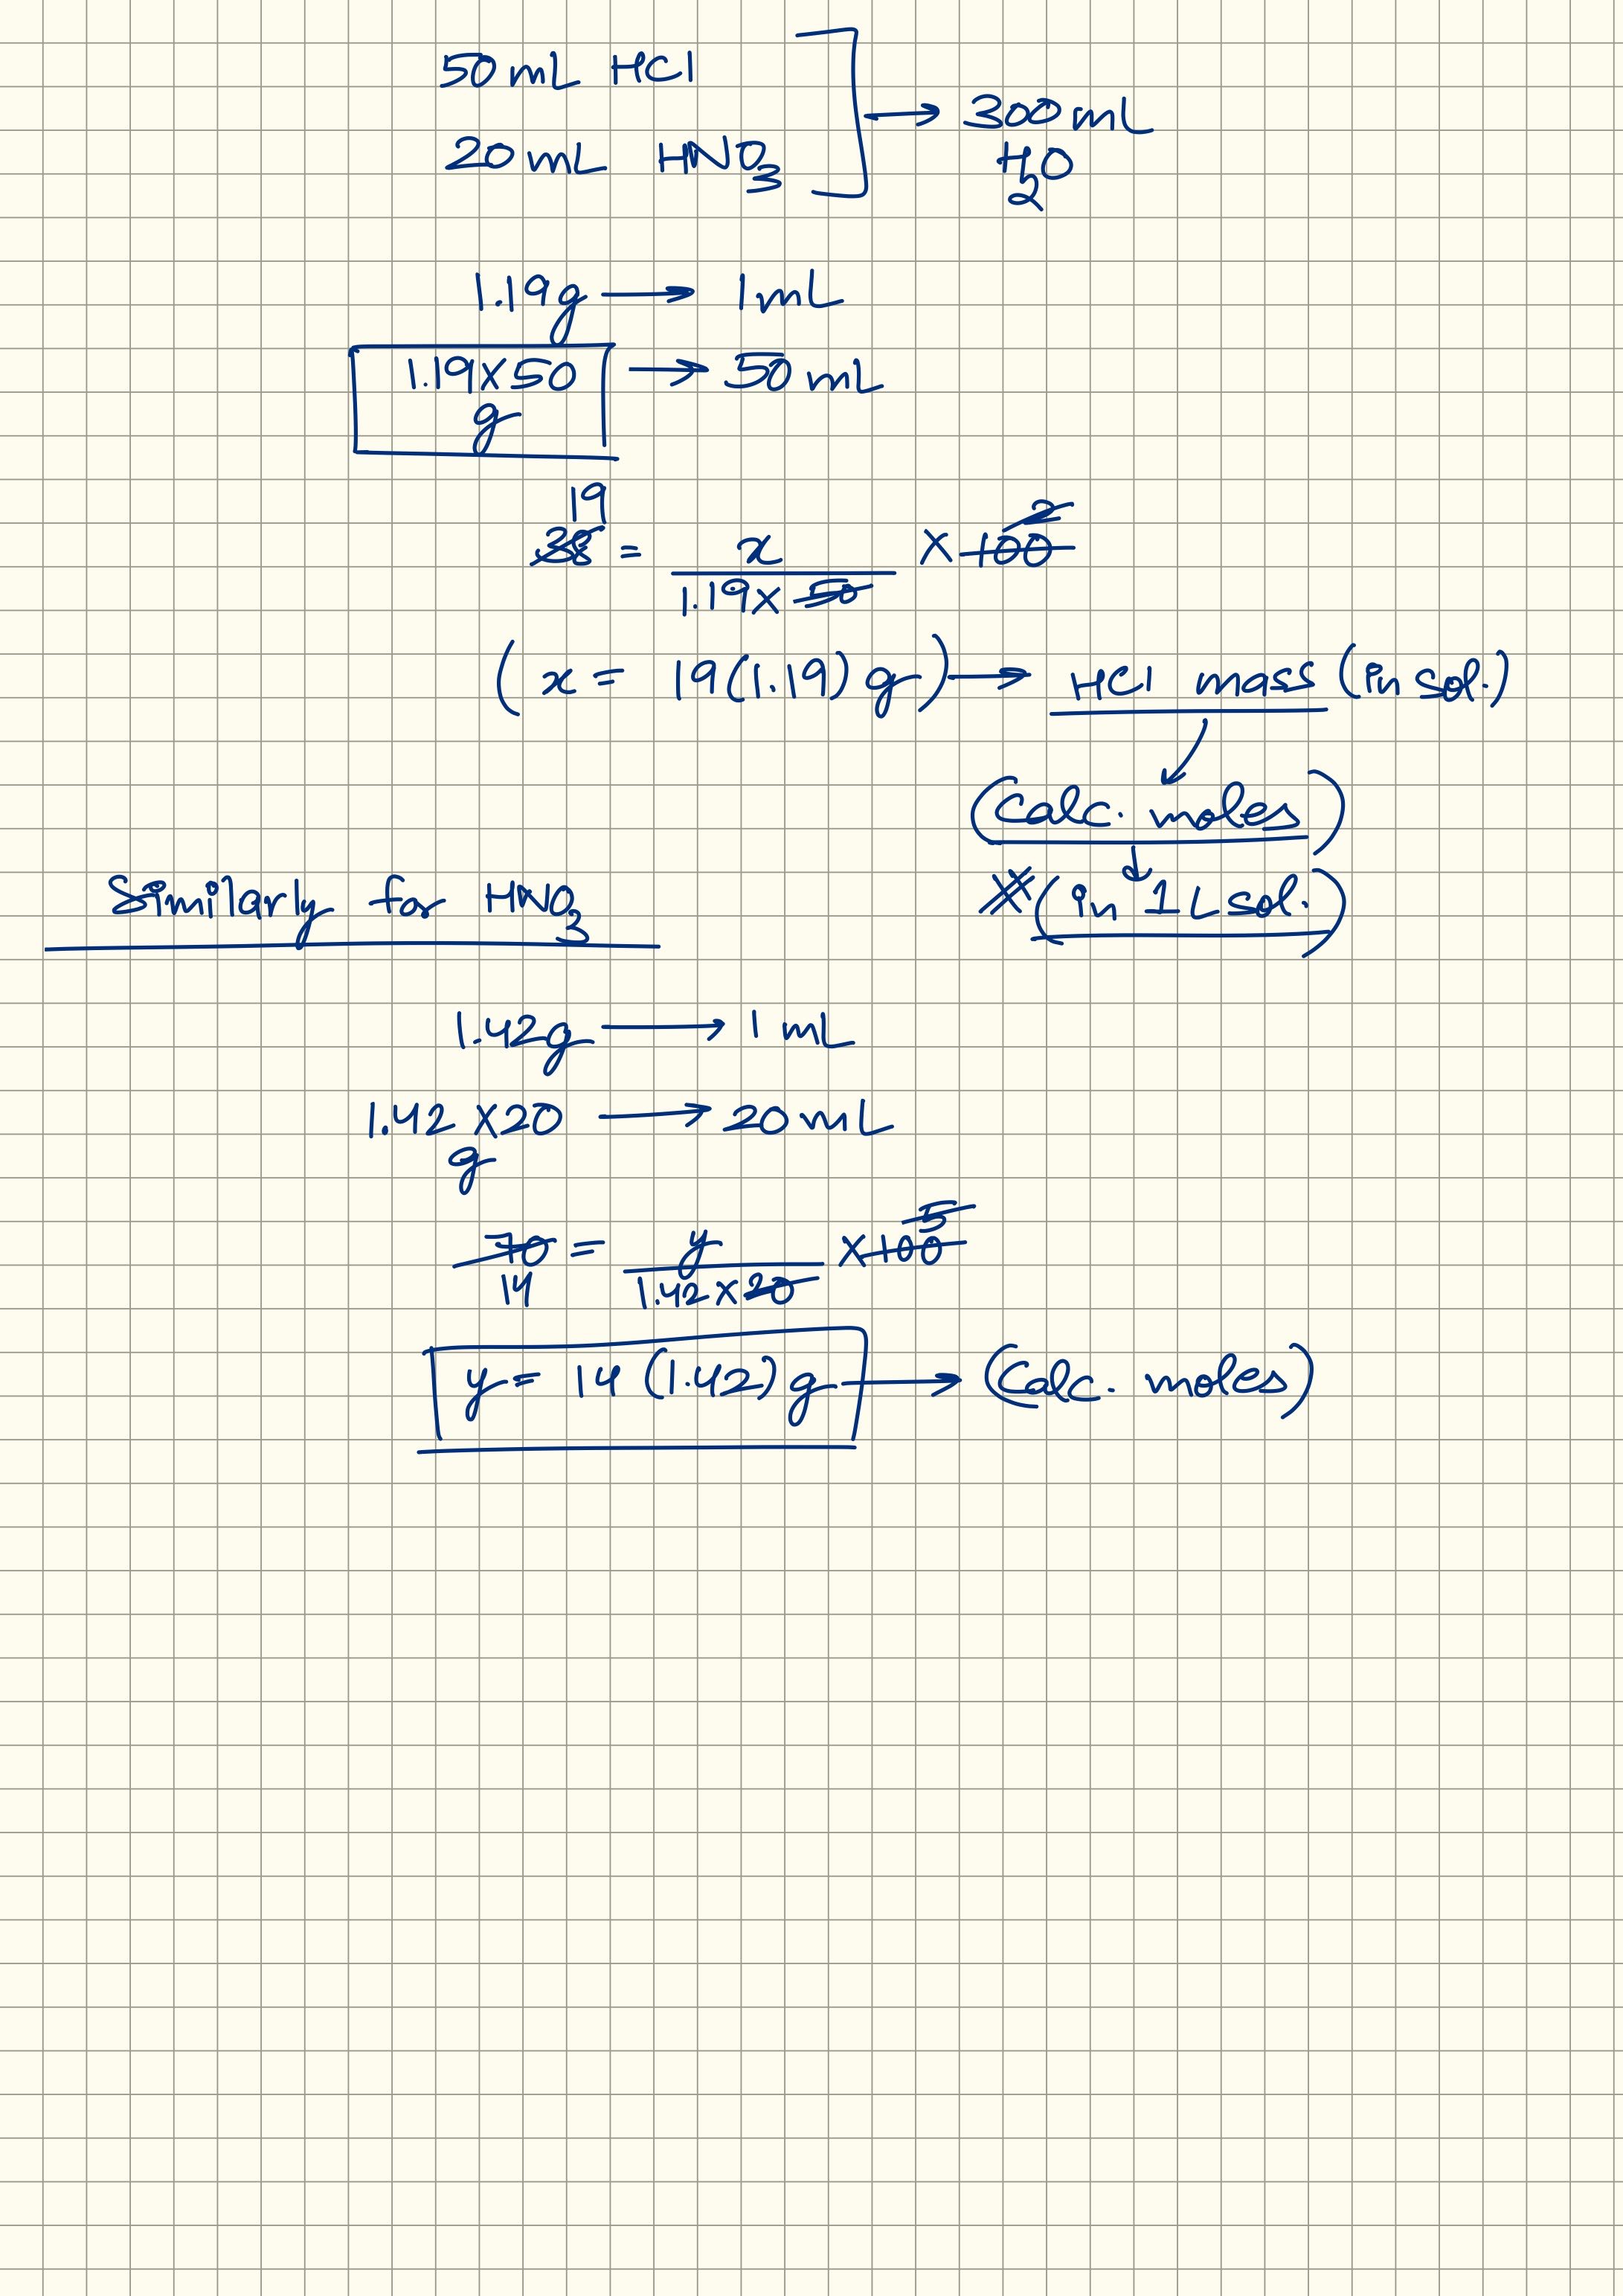 50 mL HCl
20 mL HNO3
→ 300 mL
H2O
1.19g → 1 mL
1.19 X 50 → 50 mL
g
19 2
38 = x X 100
1.19 X 50
( x = 19(1.19) g ) → HCl mass (in sol.)
(Calc. moles)
(in 1 L sol.)
Similarly for HNO3
1.42g → 1 mL
1.42 X 20 → 20 mL
g
5
70 = y X 100
14 1.42 X 20
y = 14 (1.42) g → (Calc. moles)